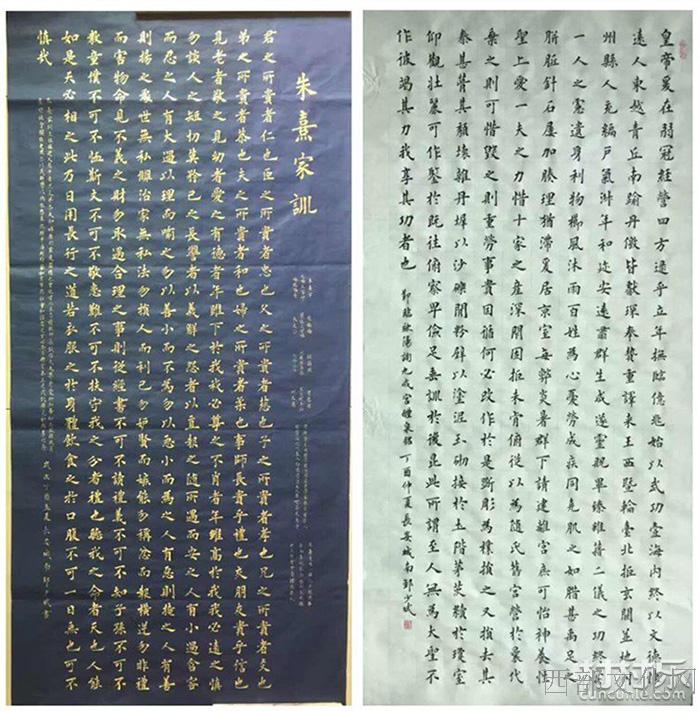 朱熹家訓
君之所貴者仁也臣之所貴者忠也父之所貴者慈也子之所貴者孝也兄之所貴者友也
弟之所貴者恭也夫之所貴者和也婦之所貴者柔也事師長貴乎禮也交朋友貴乎信也
見老者敬之見幼者愛之有德者年雖下於我我必尊之不肖者年雖高於我我必遠之慎
勿談人之短切莫矜己之長讐者以義解之怨者以直報之隨所遇而安之人有小過含容
而忍之人有大過以理而喻之勿以善小而不為勿以惡小而為之人有惡則掩之人有善
則揚之處世無私讐治家無私法勿損人而利己勿妒賢而嫉能勿稱忿而報橫逆勿非禮
而害物命見不義之財勿取遇合理之事則從經書不可不讀禮義不可不知子孫不可不
教童僕不可不恤斯文不可不敬患難不可不扶守我之分者禮也聽我之命者天也人能
如是天必相之此乃日用長行之道若衣服之於身體飲食之於口腹不可一日無也可不
慎哉
皇帝爰在弱冠經營四方逮乎立年撫臨億兆始以武功壹海內終以文德懷
遠人東越青丘南踰丹徼皆獻琛奉贄重譯來王西暨輪臺北拒玄闕並地列
州縣人充編戶氣淑年和迩安遠肅群生咸遂靈貺畢臻雖藉二儀之功終資
一人之慮遺身利物櫛風沐雨百姓為心憂勞成疾同堯肌之如腊甚禹足之
胼胝針石屢加腠理猶滯爰居京室每弊炎暑群下請建離宮庶可怡神養性
聖上愛一夫之力惜十家之產深閉固拒未肯俯從以為隨氏舊宮營於曩代
棄之則可惜毀之則重勞事貴因循何必改作於是斲彫為樸損之又損去其
泰甚葺其頹壞雜丹墀以沙礫間粉壁以塗泥玉砌接於土階茅茨續於瓊室
仰觀壯麗可作鑒於既往俯察卑儉足垂訓於後昆此所謂至人無為大聖不
作彼竭其力我享其功者也 節臨歐陽詢九成宮醴泉銘 丁酉仲夏長安城南
西部文化网
cuncunle.com